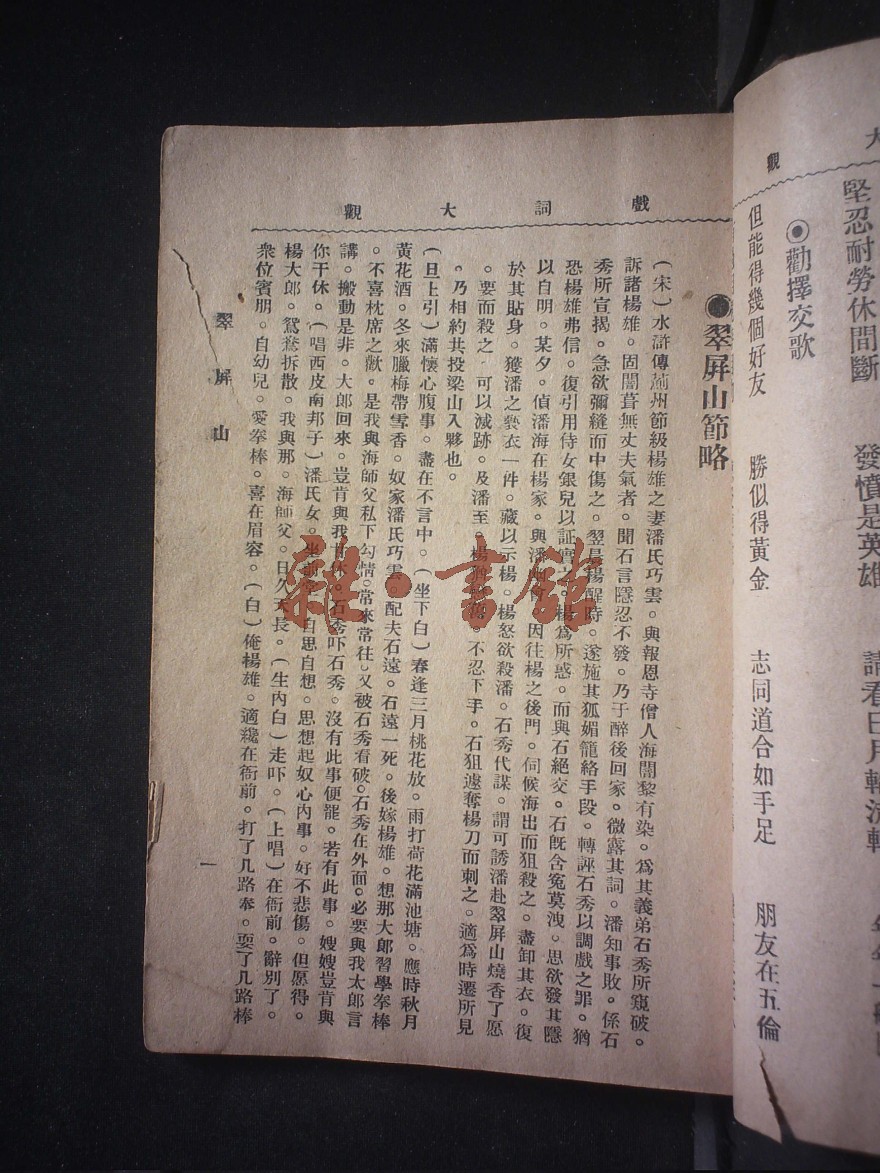 大
觀
堅忍耐勞休間斷　發憤是英雄　請看日月輪流轉
◉勸擇交歌
但能得幾個好友　勝似得黃金　志同道合如手足　朋友在五倫
戲詞大觀
●翠屏山節略
(宋)水滸傳薊州節級楊雄之妻潘氏巧雲。與報恩寺僧人海闍黎有染。爲其義弟石秀所窺破。
訴諸楊雄。固闒葺無丈夫氣者。聞石言隱忍不發。乃于醉後回家。微露其詞。潘知事敗。係石
秀所宣揭。急欲彌縫而中傷之。翌晨楊醒時。遂施其狐媚籠絡手段。轉誣石秀以調戲之罪。猶
恐楊雄弗信。復引用侍女銀兒以証實之。楊爲所惑。而與石絶交。石旣含冤莫洩。思欲發其隱
以自明。某夕。偵潘海在楊家。與潘會。因往楊之後門。伺候海出而狙殺之。盡卸其衣。復
於其貼身。獲潘之褻衣一件。藏以示楊。楊怒欲殺潘。石秀代謀。謂可誘潘赴翠屏山燒香了愿
。要而殺之。可以滅跡。及潘至。楊。不忍下手。石狙遽奪楊刀而刺之。適爲時遷所見
。乃相約共投梁山入夥也。
(旦上引)滿懷心腹事。盡在不言中。(坐下白)春逢三月桃花放。雨打荷花滿池塘。應時秋月
黃花酒。冬來臘梅帶雪香。奴家潘氏巧雲。配夫石遠。石遠一死。後嫁楊雄。想那大郎習學拳棒
。不喜枕席之歡。是我與海師父私下勾情。常來常往。又被石秀看破。石秀在外面。必要與我太郎言
講。搬動是非。大郎回來。豈肯與我甘休。石秀吓石秀。沒有此事便罷。若有此事。嫂嫂豈肯與
你干休。(唱西皮南邦子)潘氏女。坐前自思自想。思想起奴心內事。好不悲傷。但愿得。
楊大郎。鴛鴦拆散。我與那。海師父。日久天長。(生內白)走吓。(上唱)在衙前。辭別了。
衆位賓朋。自幼兒。愛拳棒。喜在眉容。(白)俺楊雄。適纔在衙前。打了几路拳。耍了几路棒
翠屏山
一
雜·書館